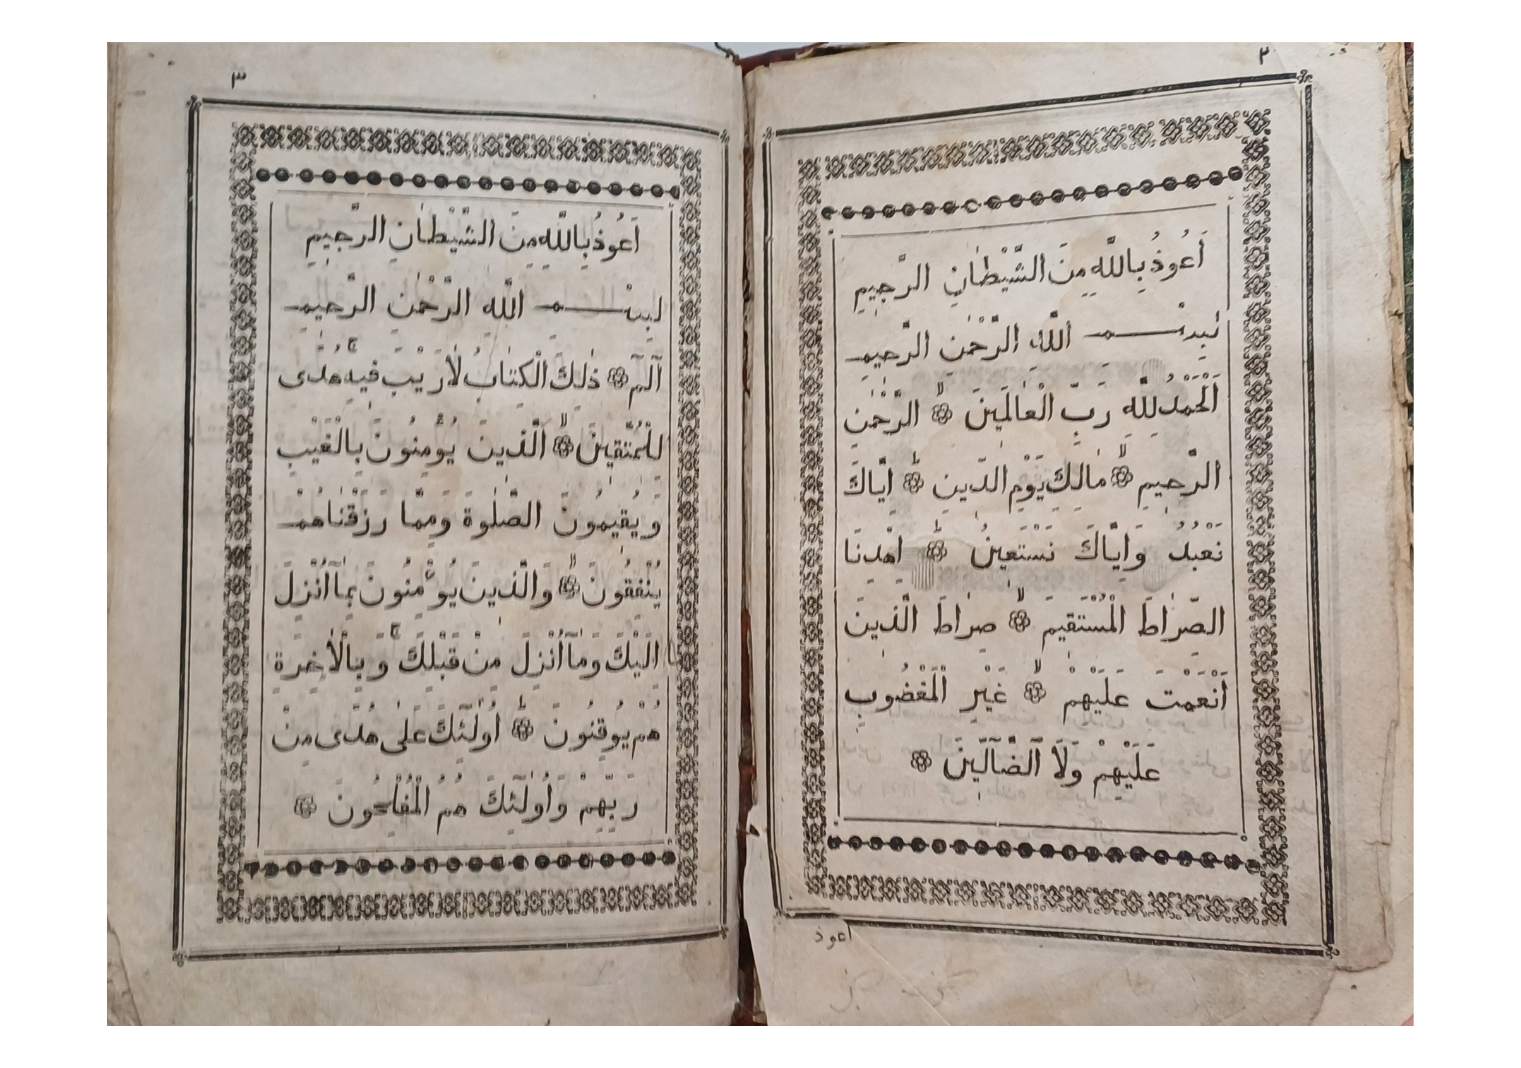 ٢
اَعُوذُ بِاللَّهِ مِنَ الشَّيْطَانِ الرَّجِيمِ
بِسْمِ اللَّهِ الرَّحْمٰنِ الرَّحِيمِ
اَلْحَمْدُ لِلَّهِ رَبِّ الْعَالَمِينَ ۝ الرَّحْمٰنِ
الرَّحِيمِ ۝ مَالِكِ يَوْمِ الدِّينِ ۝ اِيَّاكَ
نَعْبُدُ وَاِيَّاكَ نَسْتَعِينُ ۝ اِهْدِنَا
الصِّرَاطَ الْمُسْتَقِيمَ ۝ صِرَاطَ الَّذِينَ
اَنْعَمْتَ عَلَيْهِمْ ۝ غَيْرِ الْمَغْضُوبِ
عَلَيْهِمْ وَلَا الضَّآلِّينَ ۝
اعوذ
٣
اَعُوذُ بِاللَّهِ مِنَ الشَّيْطَانِ الرَّجِيمِ
بِسْمِ اللَّهِ الرَّحْمٰنِ الرَّحِيمِ
آلٓمٓ ۝ ذٰلِكَ الْكِتَابُ لَا رَيْبَ فِيهِ هُدًى
لِلْمُتَّقِينَ ۝ اَلَّذِينَ يُؤْمِنُونَ بِالْغَيْبِ
وَيُقِيمُونَ الصَّلٰوةَ وَمِمَّا رَزَقْنَاهُمْ
يُنْفِقُونَ ۝ وَالَّذِينَ يُؤْمِنُونَ بِمَآ اُنْزِلَ
اِلَيْكَ وَمَآ اُنْزِلَ مِنْ قَبْلِكَ وَبِالْاٰخِرَةِ
هُمْ يُوقِنُونَ ۝ اُولٰٓئِكَ عَلٰى هُدًى مِنْ
رَبِّهِمْ وَاُولٰٓئِكَ هُمُ الْمُفْلِحُونَ ۝